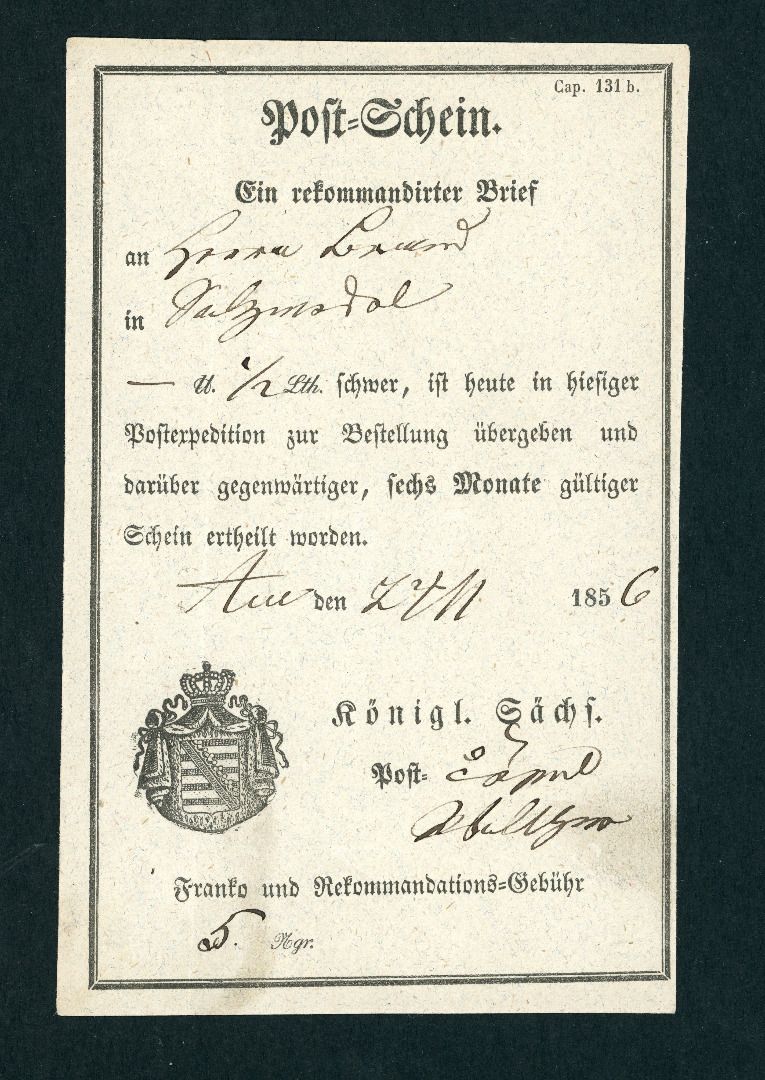 Cap. 131 b.
Post-Schein.
Ein rekommandirter Brief
an Herrn Brand
in Salzwedel
— ℔. 1/2 Lth. schwer, ist heute in hiesiger
Postexpedition zur Bestellung übergeben und
darüber gegenwärtiger, sechs Monate gültiger
Schein ertheilt worden.
Aue den 1856
Königl. Sächs.
Post-
Franko und Rekommandations-Gebühr
5. Ngr.